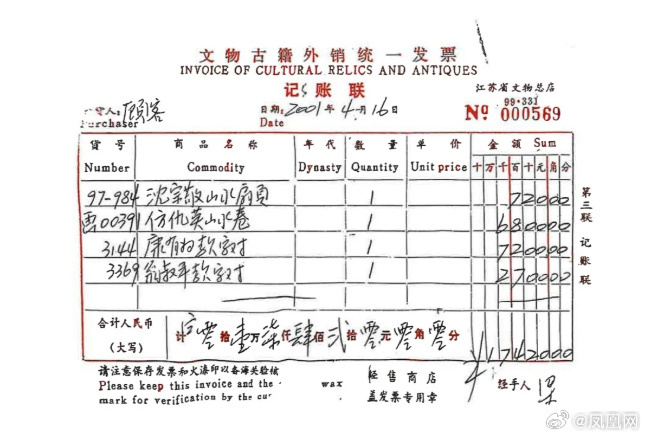 文物古籍外销统一发票
INVOICE OF CULTURAL RELICS AND ANTIQUES
记账联
江苏省文物总店
99·331
No 000569
人: 顾客
Purchaser
日期: 2001年4月16日
Date
货号 商品名称 年代 数量 单价 金额 Sum
Number Commodity Dynasty Quantity Unit price 十万千百十元角分
97-984 沈宗敬山水扇页 1 72000
画00391 仿仇英山水卷 1 680000
3144 康有为款字对 1 720000
3369 翁叔平款字对 1 270000
合计人民币
(大写)
计 零拾壹万柒仟肆佰贰拾零元零角零分 ¥1742000
第三联 记账联
请注意保存发票和火漆印以备海关验核
Please keep this invoice and the wax
mark for verification by the cus
经售商店
盖发票专用章
经手人 梁
@凤凰网